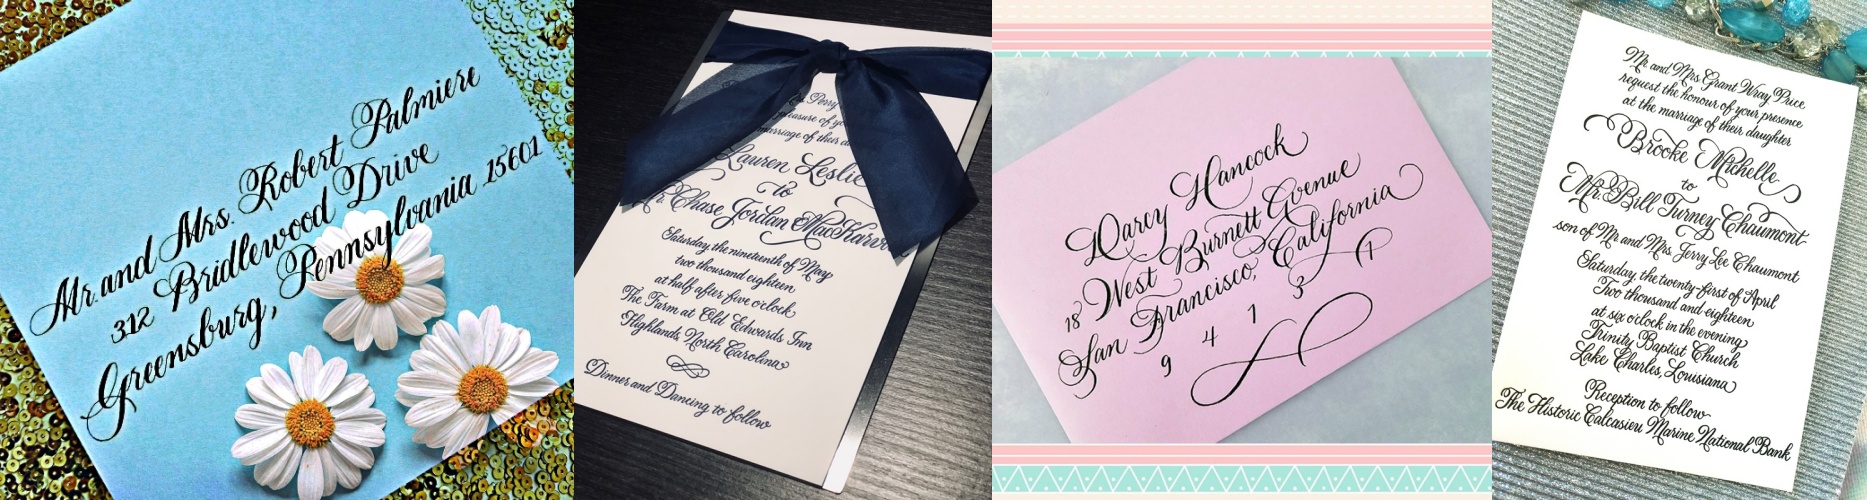 Mr. and Mrs. Robert Palmiere
312 Bridlewood Drive
Greensburg, Pennsylvania 15601
Perry
easure of yo
arriage of their da
Lauren Leslie
to
Mr. Chase Jordan MacKarv
Saturday, the nineteenth of May
two thousand eighteen
at half after five o'clock
The Farm at Old Edwards Inn
Highlands, North Carolina
Dinner and Dancing to follow
Darcy Hancock
18 West Burnett Avenue
San Francisco, California
9 4 1 3 1
Mr and Mrs Grant Wray Price
request the honour of your presence
at the marriage of their daughter
Brooke Michelle
to
Mr. Bill Turney Chaumont
son of Mr and Mrs. Jerry Lee Chaumont
Saturday, the twenty-first of April
Two thousand and eighteen
at six o'clock in the evening
Trinity Baptist Church
Lake Charles, Louisiana
Reception to follow
The Historic Calcasieu Marine National Bank